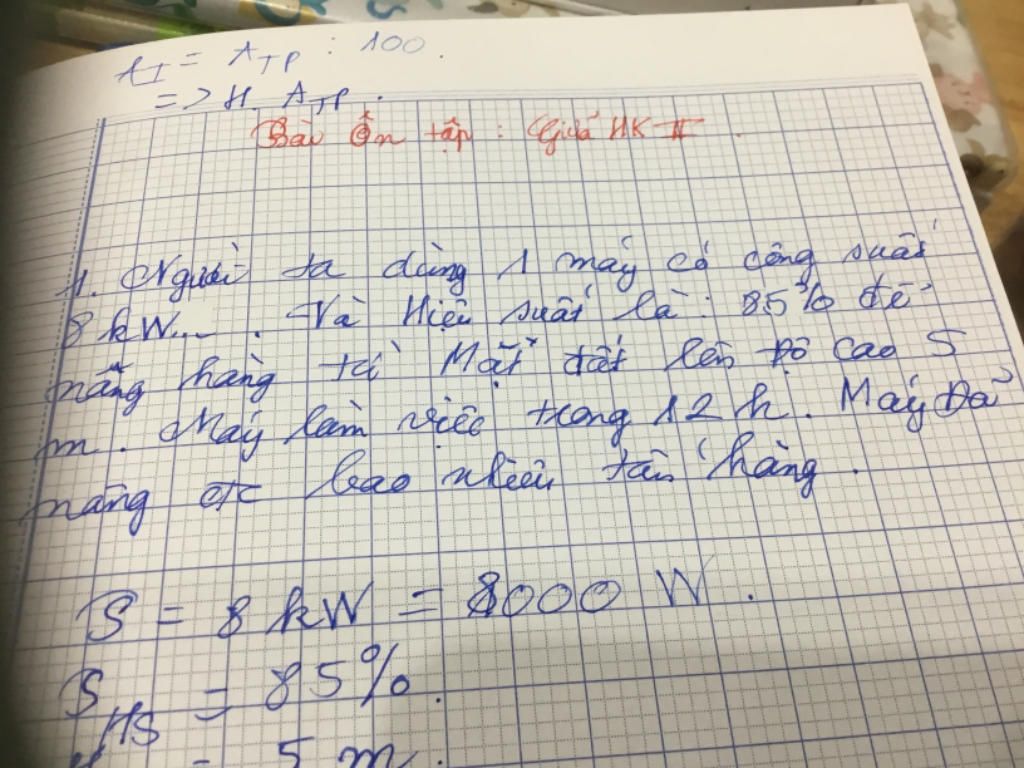 A_I = A_TP : 100.
=> H. A_TP.
Bài Ôn tập : Giữa HK II.
1. Người ta dùng 1 máy có công suất
8 kW... . Và Hiệu suất là : 85% để
nâng hàng từ Mặt đất lên Độ cao 5
m. Máy làm việc trong 12 h. Máy Đã
nâng đc bao nhiêu tấn hàng.
S = 8 kW = 8000 W.
S_HS = 85%.
= 5 m.